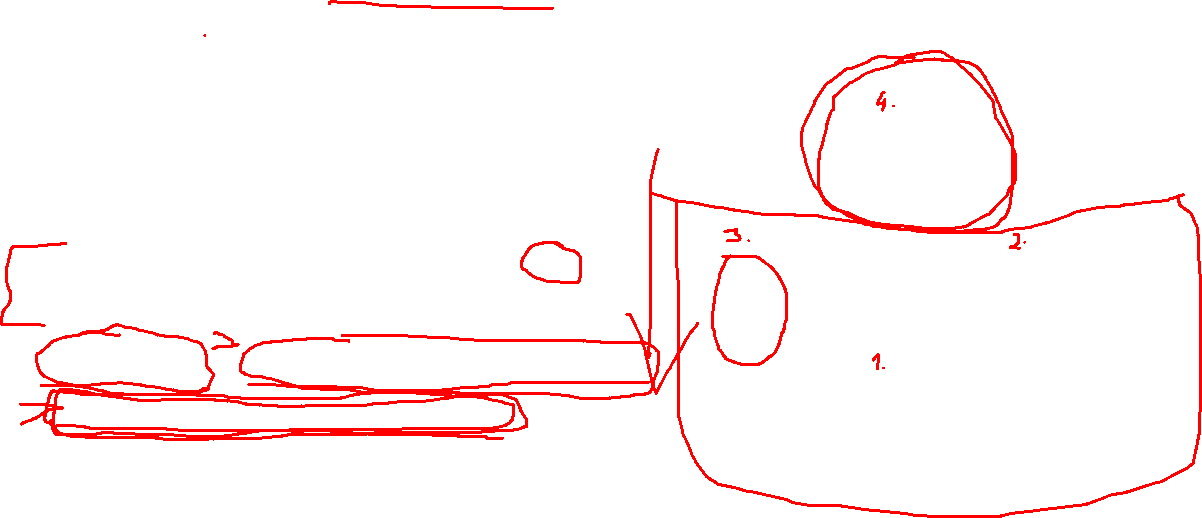 4.
3.
2.
1.